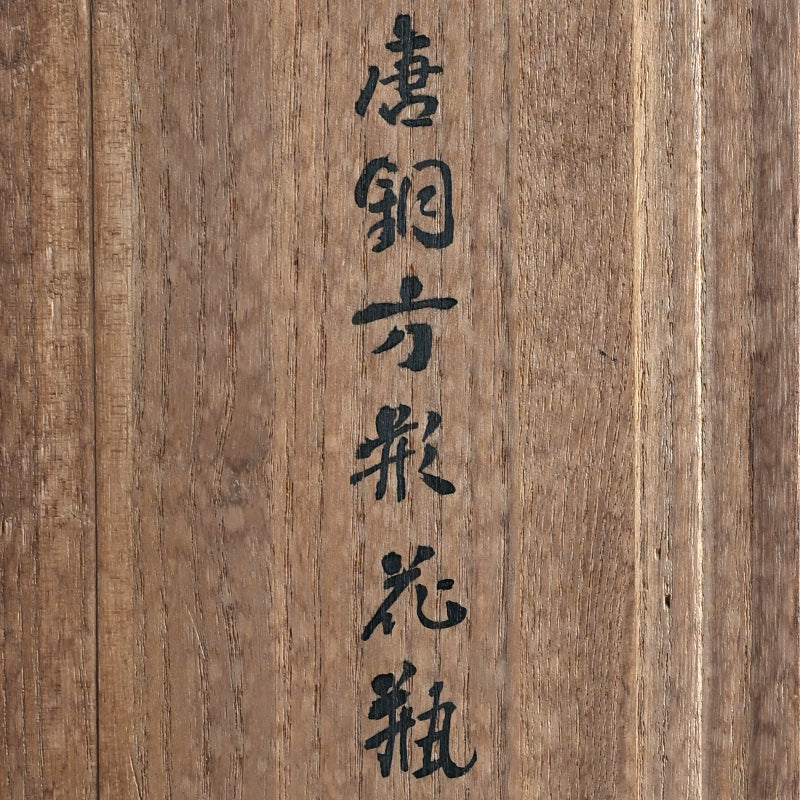 唐銅方形花瓶